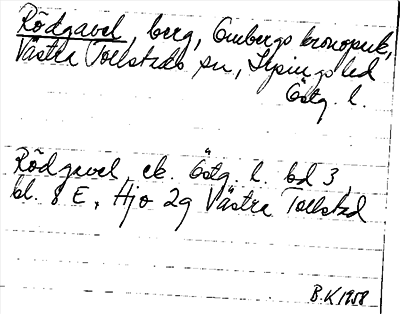 Rödgavel, berg, Ombergs kronopark,
Västra Tollstads sn, Lysings hd
Östg. l.
Rödgavel ek. Östg. l. bd 3,
bl. 8 E, Hjo 2g Västra Tollstad
B.K 1958